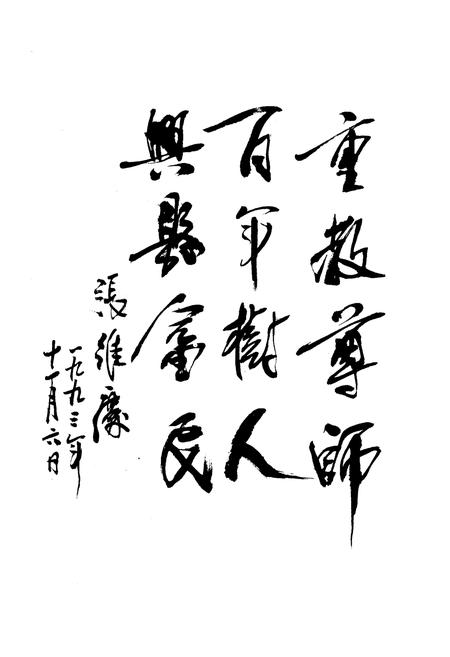 重教尊師
百年樹人
興縣富民
張維慶
一九九三年
十一月六日